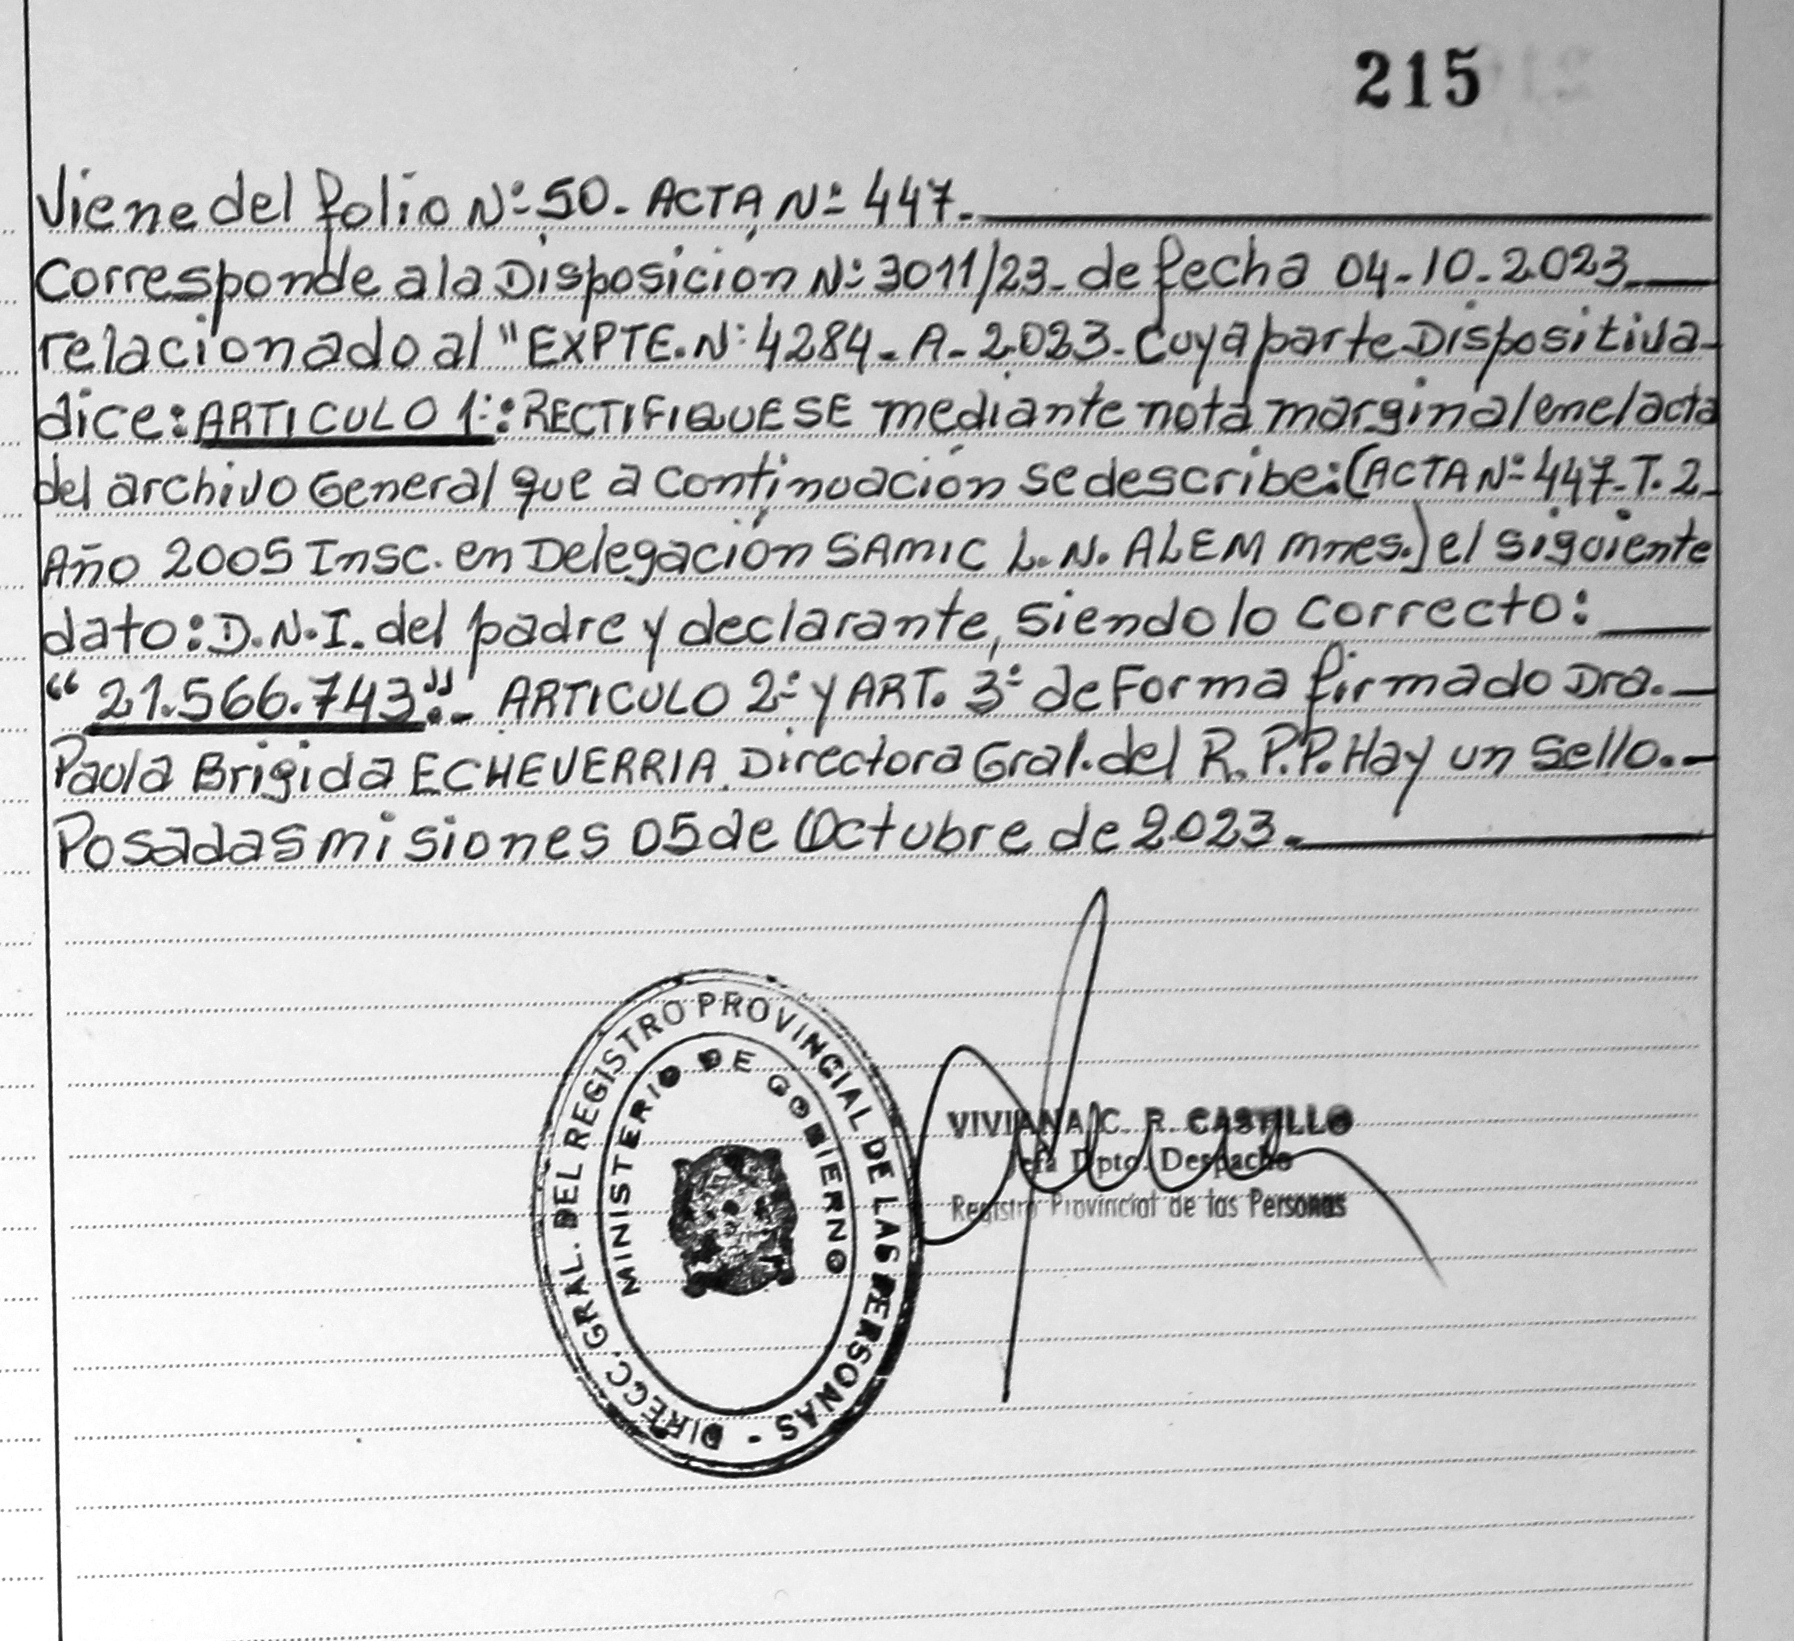 215
Viene del folio Nº 50- ACTA Nº 447.
Corresponde a la Disposición Nº 3011/23- de fecha 04-10-2023
relacionado al "EXPTE. Nº 4284- A- 2023- Cuya parte Dispositiva-
dice: ARTICULO 1º: RECTIFIQUESE mediante nota marginal en el acta
del archivo General que a continuación se describe: (ACTA Nº 447-T. 2-
Año 2005 Insc. en Delegación SAMIC L. N. ALEM Mnes.) el siguiente
dato: D.N.I. del padre y declarante, siendo lo correcto:
"21.566.743".- ARTICULO 2º y ART. 3º de Forma firmado Dra.-
Paula Brigida ECHEVERRIA Directora Gral. del R.P.P. Hay un sello.-
Posadas misiones 05 de Octubre de 2023.
DIRECC. GRAL. DEL REGISTRO PROVINCIAL DE LAS PERSONAS -
MINISTERIO DE GOBIERNO
VIVIANA C. R. CASTILLO
Jefa Dpto. Despacho
Registro Provincial de las Personas